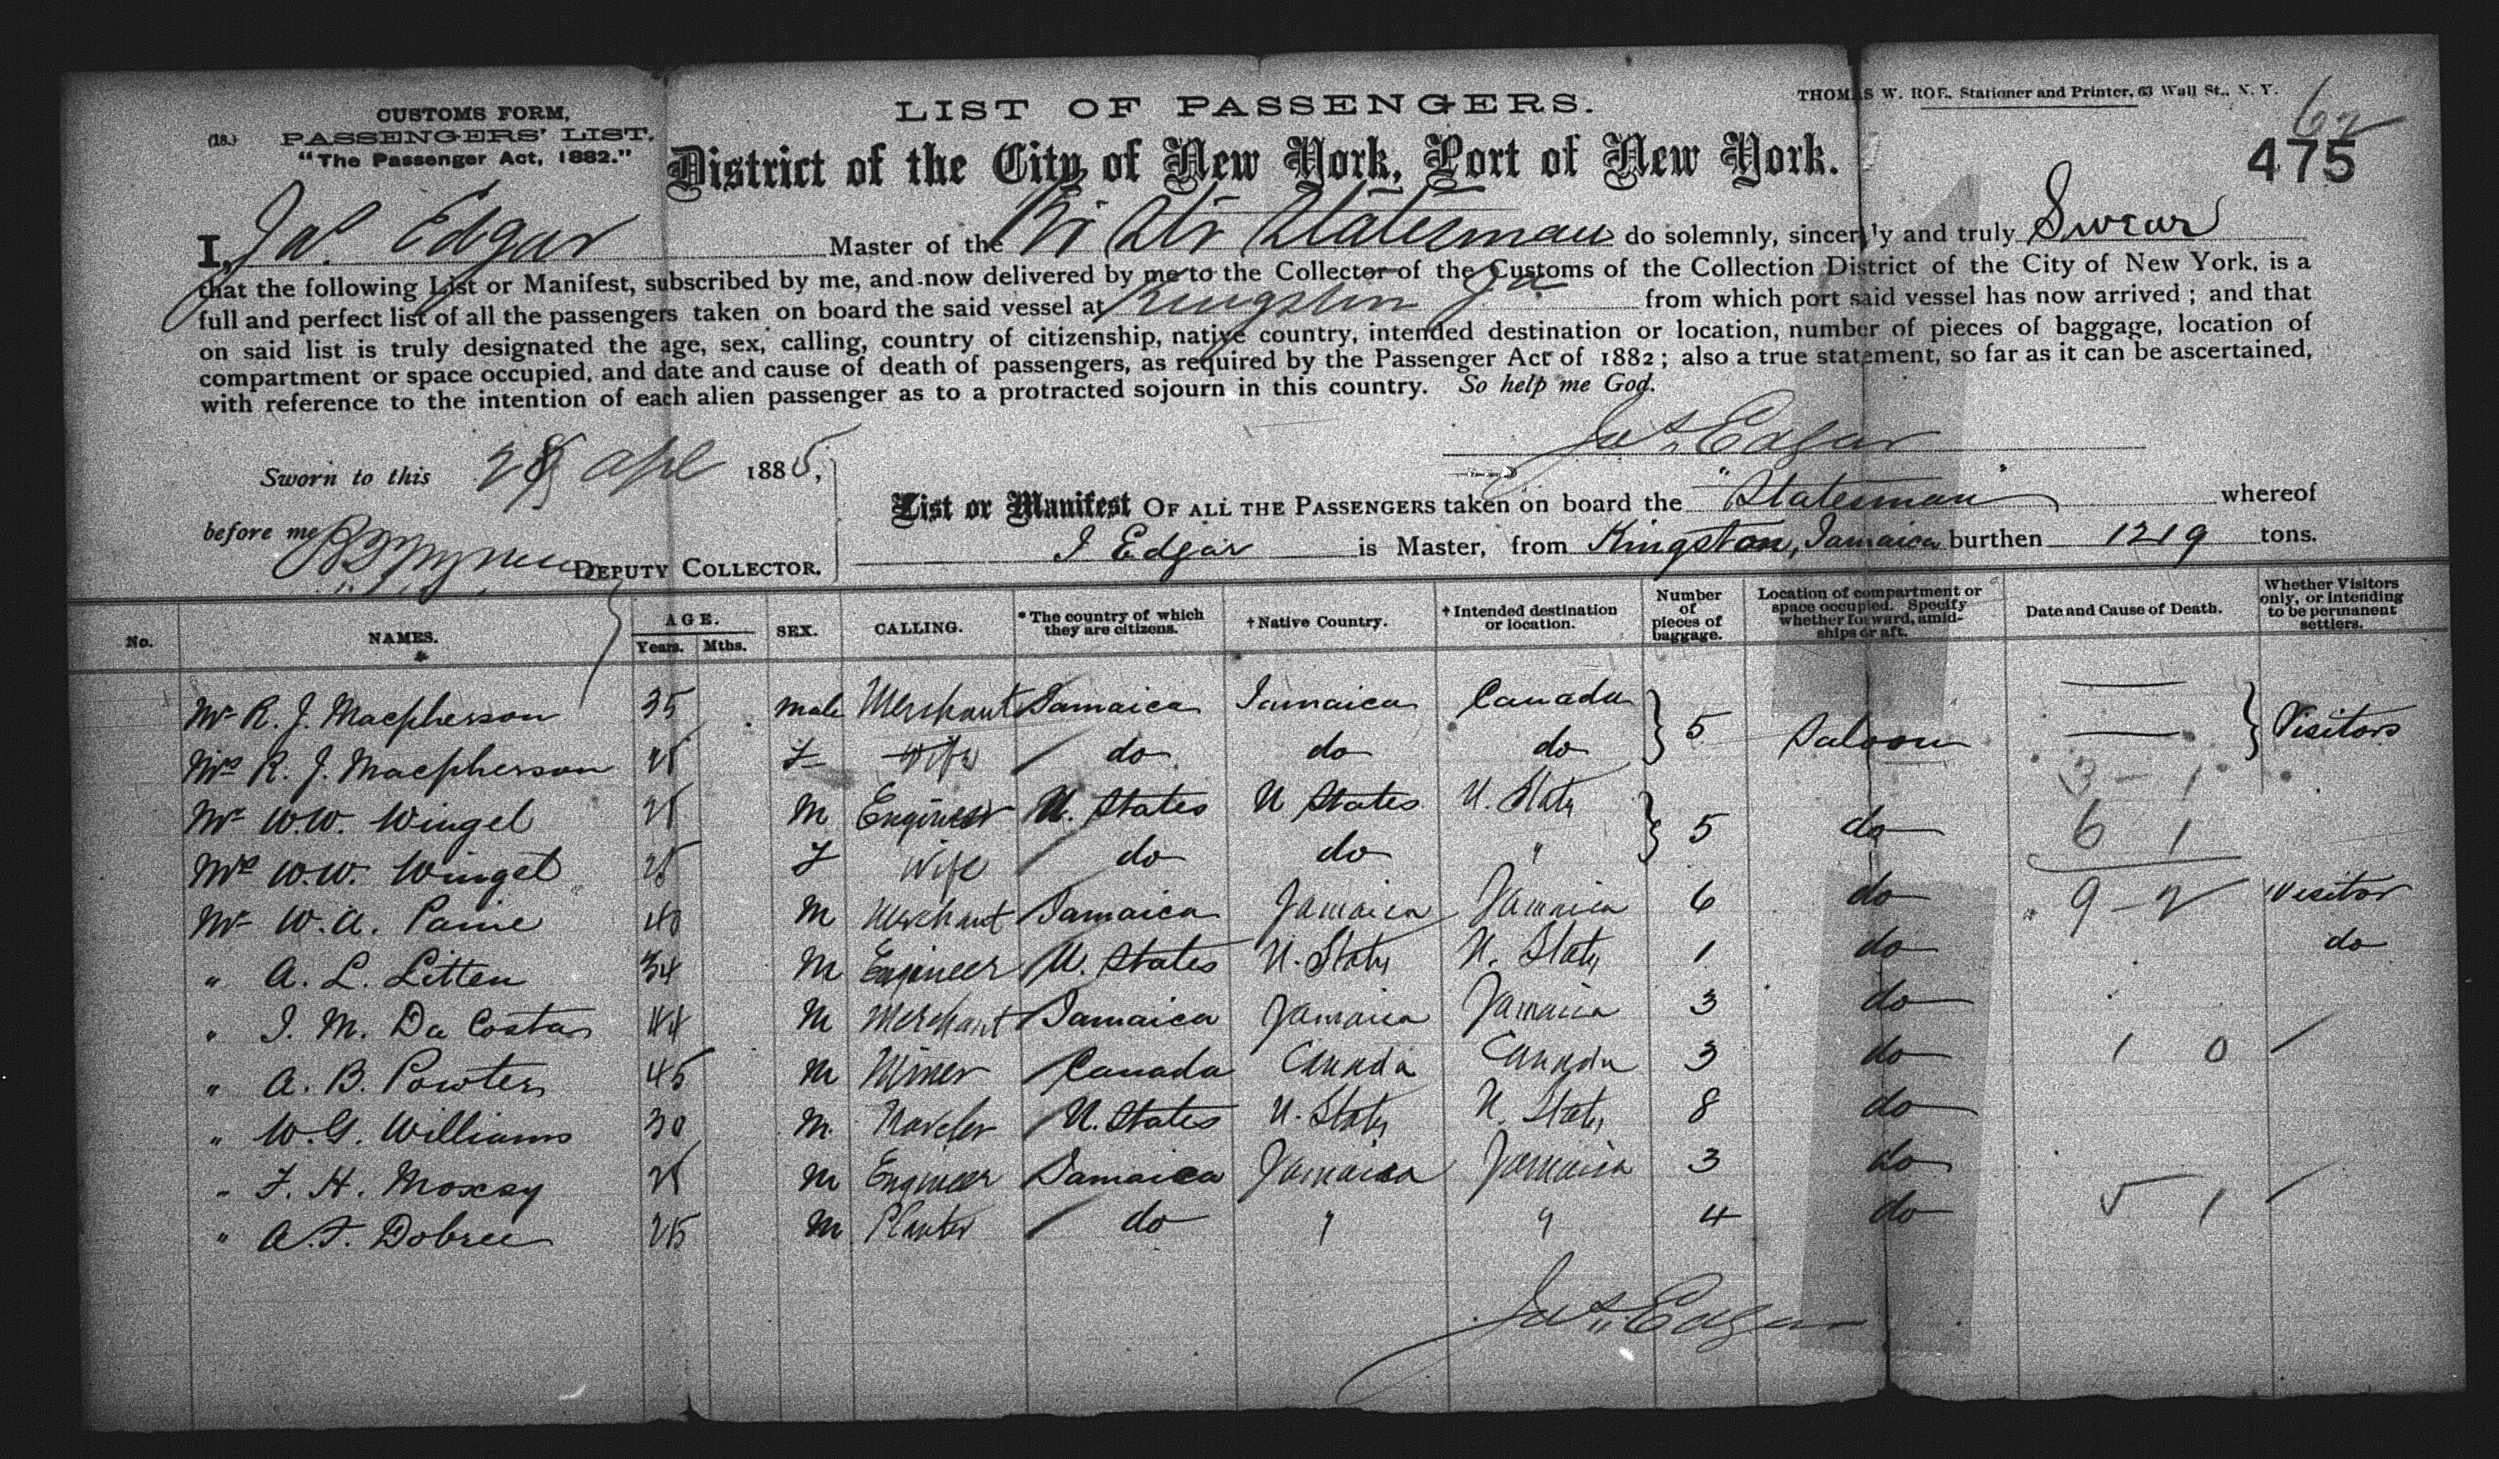 CUSTOMS FORM,
(18.) PASSENGERS' LIST.
"The Passenger Act, 1882."
LIST OF PASSENGERS.
THOMAS W. ROE, Stationer and Printer, 63 Wall St., N. Y.
62
475
District of the City of New York, Port of New York.
I, Jas. Edgar Master of the Br Str Statesman do solemnly, sincerely and truly Swear
that the following List or Manifest, subscribed by me, and now delivered by me to the Collector of the Customs of the Collection District of the City of New York, is a
full and perfect list of all the passengers taken on board the said vessel at Kingston Ja from which port said vessel has now arrived; and that
on said list is truly designated the age, sex, calling, country of citizenship, native country, intended destination or location, number of pieces of baggage, location of
compartment or space occupied, and date and cause of death of passengers, as required by the Passenger Act of 1882; also a true statement, so far as it can be ascertained,
with reference to the intention of each alien passenger as to a protracted sojourn in this country. So help me God.
Jas. Edgar
Sworn to this apl 1885,
before me
DEPUTY COLLECTOR.
List or Manifest OF ALL THE PASSENGERS taken on board the "Statesman" whereof
J Edgar is Master, from Kingston, Jamaica burthen 1219 tons.
No. NAMES. AGE. Years. Mths. SEX. CALLING. *The country of which they are citizens. †Native Country. †Intended destination or location. Number of pieces of baggage. Location of compartment or space occupied. Specify whether forward, amidships or aft. Date and Cause of Death. Whether Visitors only, or intending to be permanent settlers.
Mr R. J. Macpherson 35 male Merchant Jamaica Jamaica Canada
Mrs R. J. Macpherson F wife do do do 5 Saloon Visitors
3 - 1
Mr W.W. Wingel M Engineer U. States U States U. States
Mrs W.W. Wingel F wife do do " 5 do 6 1
Mr W. A. Paine 40 M Merchant Jamaica Jamaica Jamaica 6 do 9 - 2 Visitor
" A. L. Litten 34 M Engineer U. States U. States U. States 1 do do
" J. M. Da Costa 44 M Merchant Jamaica Jamaica Jamaica 3 do
" A. B. Powter 45 M Miner Canada Canada Canada 3 do 1 0
" W. G. Williams 30 M Traveler U. States U. States U. States 8 do
" F. H. Moxsy M Engineer Jamaica Jamaica Jamaica 3 do
" A. F. Dobree 25 M Planter do " " 4 do 5 1
Jas. Edgar